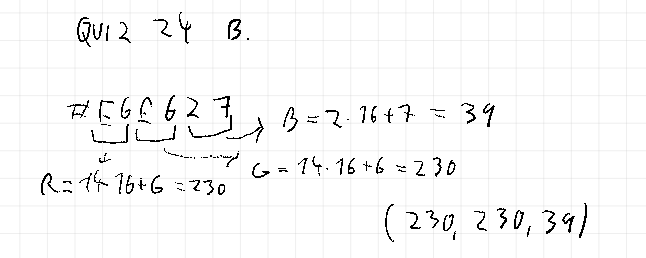 QUIZ 24 B.
#E6E627
B = 2·16+7 = 39
G = 14·16+6 = 230
R = 14·16+6 = 230
(230, 230, 39)